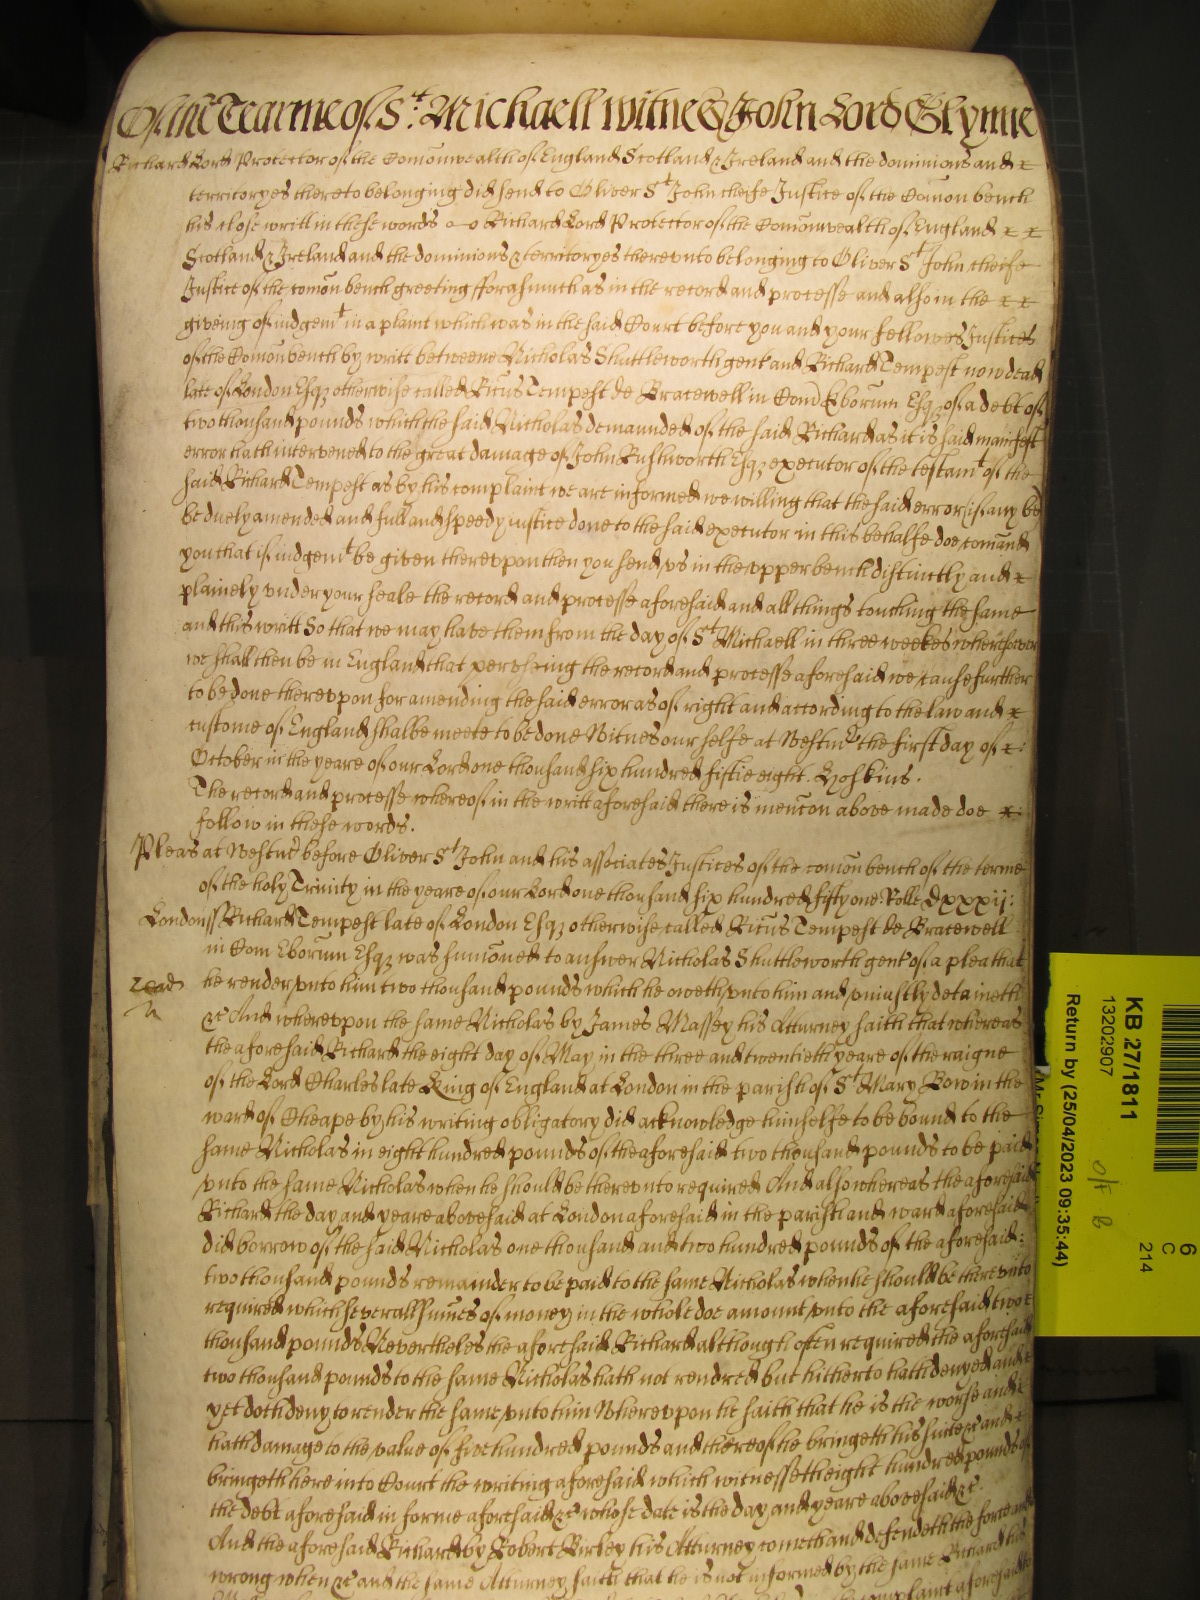 Of the Tearme of St. Michaell witnes John Lord Glynne
Richard Lord Protector of the Comōnwealth of England Scotland & Ireland and the dominions and
territoryes thereto belonging did send to Oliver St John cheife Justice of the Comōn bench
his close writt in these words Richard Lord Protector of the Comōnwealth of England
Scotland & Ireland and the dominions & territoryes therevnto belonging to Oliver St John cheife
Justice of the comōn bench greeting fforasmuch as in the record and processe and also in the
giveing of iudgemt in a plaint which was in the said Court before you and your fellowes Justices
of the Comōn bench by writt betweene Nicholas Shuttleworth gent and Richard Tempest now dead
late of London Esqz otherwise called Ricūs Tempest de Bracewell in Com Eborum Esqz of a debt of
two thousand pounds which the said Nicholas demaunded of the said Richard as it is said manifest
error hath intervened to the great damage of John Rushworth Esqz executor of the testamt of the
said Richard Tempest as by his complaint we are informed we willing that the said error if any be
be duely amended and full and speedy iustice done to the said executor in this behalfe doe comānd
you that if iudgemt be given therevpon then you send vs in the vpper bench distinctly and
plainely vnder your seale the record and processe aforesaid and all things touching the same
and this writt So that we may have them from the day of St Michaell in three weekes wheresoever
we shall then be in England that pervseing the record and processe aforesaid we cause further
to be done therevpon for amending the said error as of right and according to the law and
custome of England shalbe meete to be done Witnes our selfe at Westmr the first day of
October in the yeare of our Lord one thousand six hundred fiftie eight. Hoskins.
The record and processe whereof in the writt aforesaid there is mencōn above made doe
follow in these words.
Pleas at Westmr before Oliver St John and his associates Justices of the comōn bench of the terme
of the holy Trinity in the yeare of our Lord one thousand six hundred fifty one. Rolle Dxxxij:
London ss Richard Tempest late of London Esqz otherwise called Ricūs Tempest de Bracewell
in Com Eborum Esqz was sumōned to answer Nicholas Shuttleworth gent of a plea that
he render vnto him two thousand pounds which he oweth vnto him and vniustly detaineth
&c And wherevpon the same Nicholas by James Massey his Atturney saith that whereas
the aforesaid Richard the eight day of May in the three and twentieth yeare of the raigne
of the Lord Charles late King of England at London in the parish of St Mary Bow in the
ward of Cheape by his writing obligatory did acknowledge himselfe to be bound to the
same Nicholas in eight hundred pounds of the aforesaid two thousand pounds to be paid
vnto the same Nicholas when he should be therevnto required And also whereas the aforesaid
Richard the day and yeare abovesaid at London aforesaid in the parish and ward aforesaid
did borrow of the said Nicholas one thousand and two hundred pounds of the aforesaid:
two thousand pounds remainder to be paid to the same Nicholas when he should be therevnto
required which severall sumēs of money in the whole doe amount vnto the aforesaid two
thousand pounds Neverthelesse the aforesaid Richard although often required the aforesaid
two thousand pounds to the same Nicholas hath not rendred but hitherto hath denyed and
yet doth deny to render the same vnto him Wherevpon he saith that he is the worse and
hath damage to the value of five hundred pounds and thereof he bringeth his suite &c and
bringeth here into Court the writing aforesaid which witnesseth eight hundred pounds of
the debt aforesaid in forme aforesaid &c whose date is the day and yeare abovesaid &c
And the aforesaid Richard by Robert Birley his Atturney cometh and defendeth the force and
wrong when &c and the same Atturney saith that he is not informed by the same Richard his
KB 27/1811
13202907
Return by (25/04/2023 09:35:44)
6
C
214